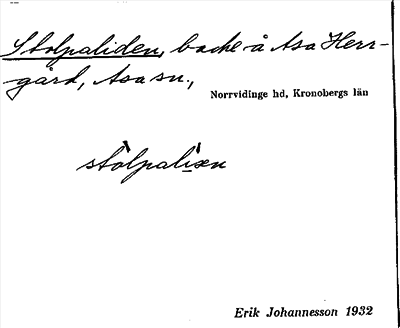 Stolpaliden, backe å Asa Herr-
gård, Asa sn.,
Norrvidinge hd, Kronobergs län
stòlpalìen
Erik Johannesson 1932